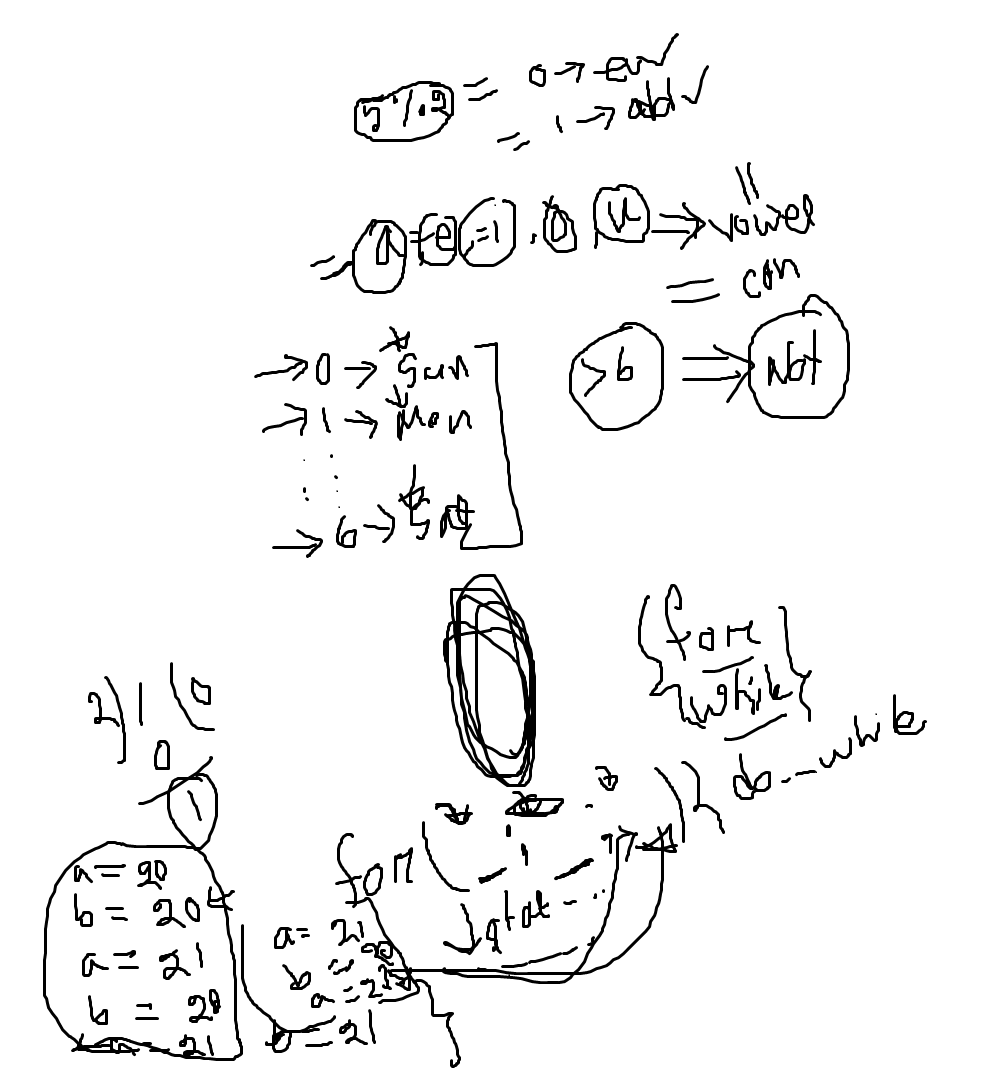 5 % 2 = 0 → ev ✓
= 1 → odd ✓
= a = e = i . o u ⇒ vowel
= con
→ 0 → Sun
→ 1 → Mon
→ 6 → Sat
> 6 ⇒ Not
{ for
while }
do -- while
2) 1 ( 0
0
1
for ( ; ; ) {
stat - ..
}
a = 20
b = 20
a = 21
b = 20
21
a = 21
b = 20
a = 21
b = 21